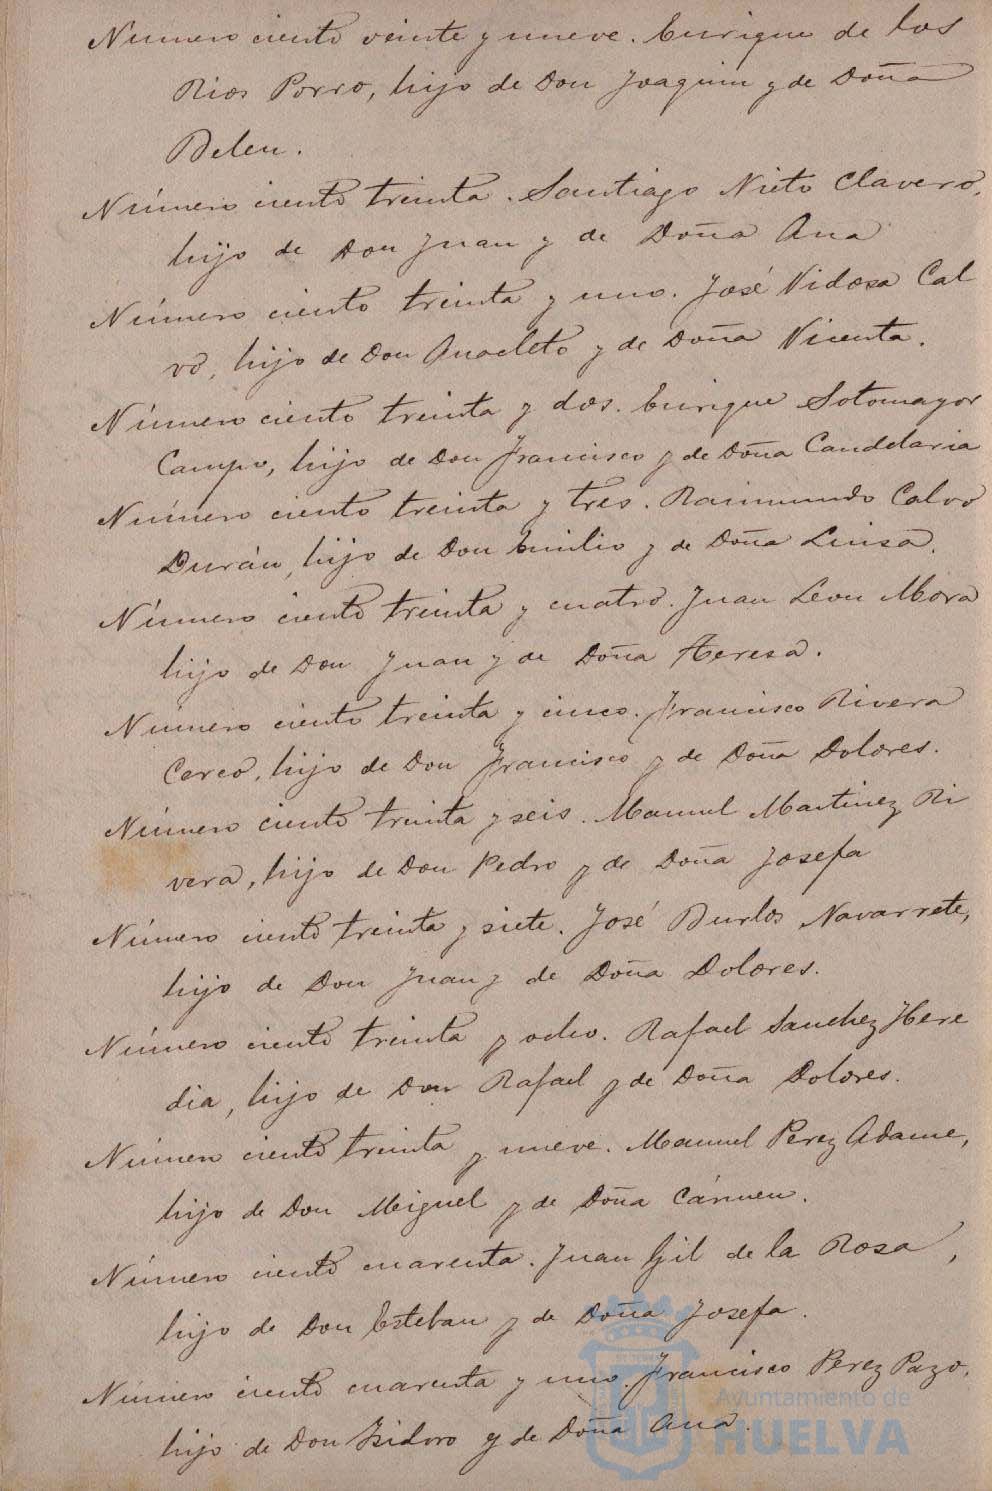 Numero ciento veinte y nueve. Enrique de los
Rios Porro, hijo de Don Joaquin y de Doña
Belen.
Número ciento treinta. Santiago Nieto Clavero,
hijo de Don Juan y de Doña Ana
Número ciento treinta y uno. José Vidosa Cal
vo, hijo de Don Anacleto y de Doña Vicenta.
Número ciento treinta y dos. Enrique Sotomayor
Campo, hijo de Don Francisco y de Doña Candelaria
Número ciento treinta y tres. Raimundo Calvo
Durán, hijo de Don Emilio y de Doña Luisa.
Número ciento treinta y cuatro. Juan Leon Mora
hijo de Don Juan y de Doña Teresa.
Número ciento treinta y cinco. Francisco Rivera
Cerco, hijo de Don Francisco y de Doña Dolores.
Número ciento treinta y seis. Manuel Martinez Ri
vera, hijo de Don Pedro y de Doña Josefa
Número ciento treinta y siete. José Burlos Navarrete,
hijo de Don Juan y de Doña Dolores.
Número ciento treinta y ocho. Rafael Sanchez Here
dia, hijo de Don Rafael y de Doña Dolores.
Número ciento treinta y nueve. Manuel Perez Adame,
hijo de Don Miguel y de Doña Cármen.
Número ciento cuarenta. Juan Gil de la Rosa,
hijo de Don Esteban y de Doña Josefa.
Número ciento cuarenta y uno. Francisco Perez Pazo,
hijo de Don Isidoro y de Doña Ana.
Ayuntamiento de
HUELVA